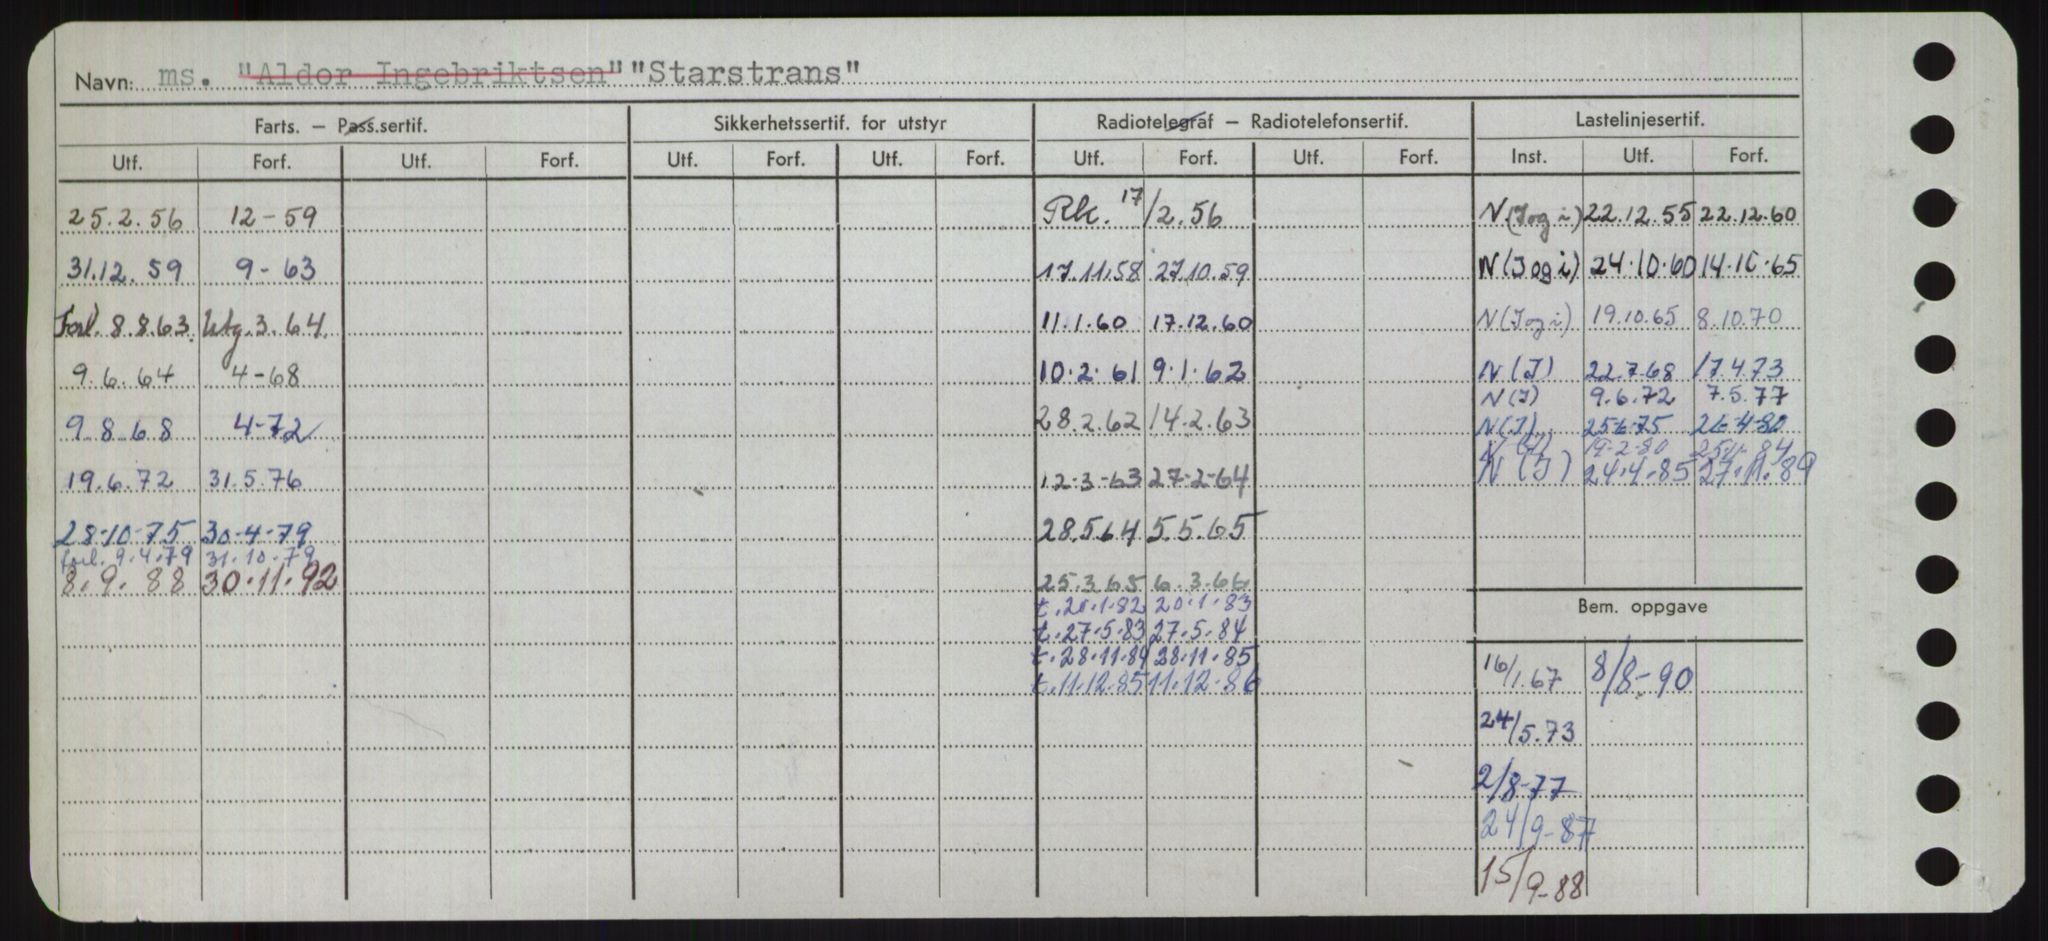 Navn: ms. "Aldor Ingebriktsen" "Starstrans"
Farts. – Pass.sertif. Sikkerhetssertif. for utstyr Radiotelegraf – Radiotelefonsertif. Lastelinjesertif.
Utf. Forf. Utf. Forf. Utf. Forf. Utf. Forf. Utf. Forf. Utf. Forf. Inst. Utf. Forf.
25.2.56 12-59 Rk. 17/2.56 N(I og i) 22.12.55 22.12.60
31.12.59 9-63 17.11.58 27.10.59 N(I og i) 24.10.60 14.10.65
Forl. 8.8.63. Utg. 3.64. 11.1.60 17.12.60 N(I og i) 19.10.65 8.10.70
9.6.64 4-68 10.2.61 9.1.62 N(I) 22.7.68 17.4.73
N(I) 9.6.72 7.5.77
9.8.68 4-72 28.2.62 14.2.63 N(I) 25-6-75 26-4-80
N(I) 19-2-80 84
19.6.72 31.5.76 12-3-63 27-2-64 N(I) 24.4.85 27.11.89
28-10-75 30-4-79 28.5.64 5.5.65
forl. 9.4.79 31.10.79
8.9.88 30.11.92 25.3.65 6.3.66
t.20.1.82 20.1.83
Bem. oppgave
t.27.5.83 27.5.84
t.28.11.84 28.11.85
t.11.12.85 11.12.86
16/1.67 8/8-90
24/5.73
2/8-77
24/9-87
15/9-88